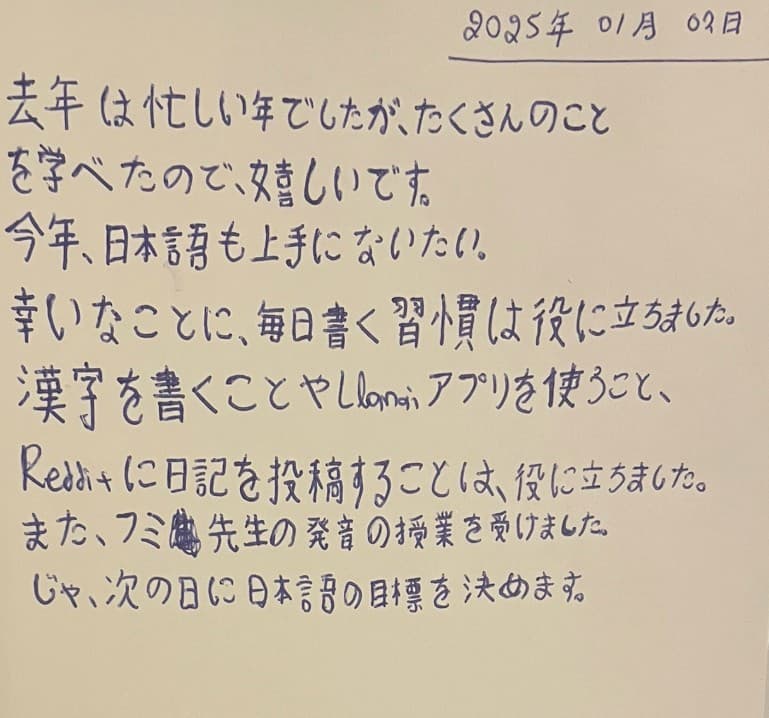 2025年 01月 02日
去年は忙しい年でしたが、たくさんのこと
を学べたので、嬉しいです。
今年、日本語も上手にないたい。
幸いなことに、毎日書く習慣は役に立ちました。
漢字を書くことやLlamaiアプリを使うこと、
Redditに日記を投稿することは、役に立ちました。
また、フミ先生の発音の授業を受けました。
じゃ、次の日に日本語の目標を決めます。